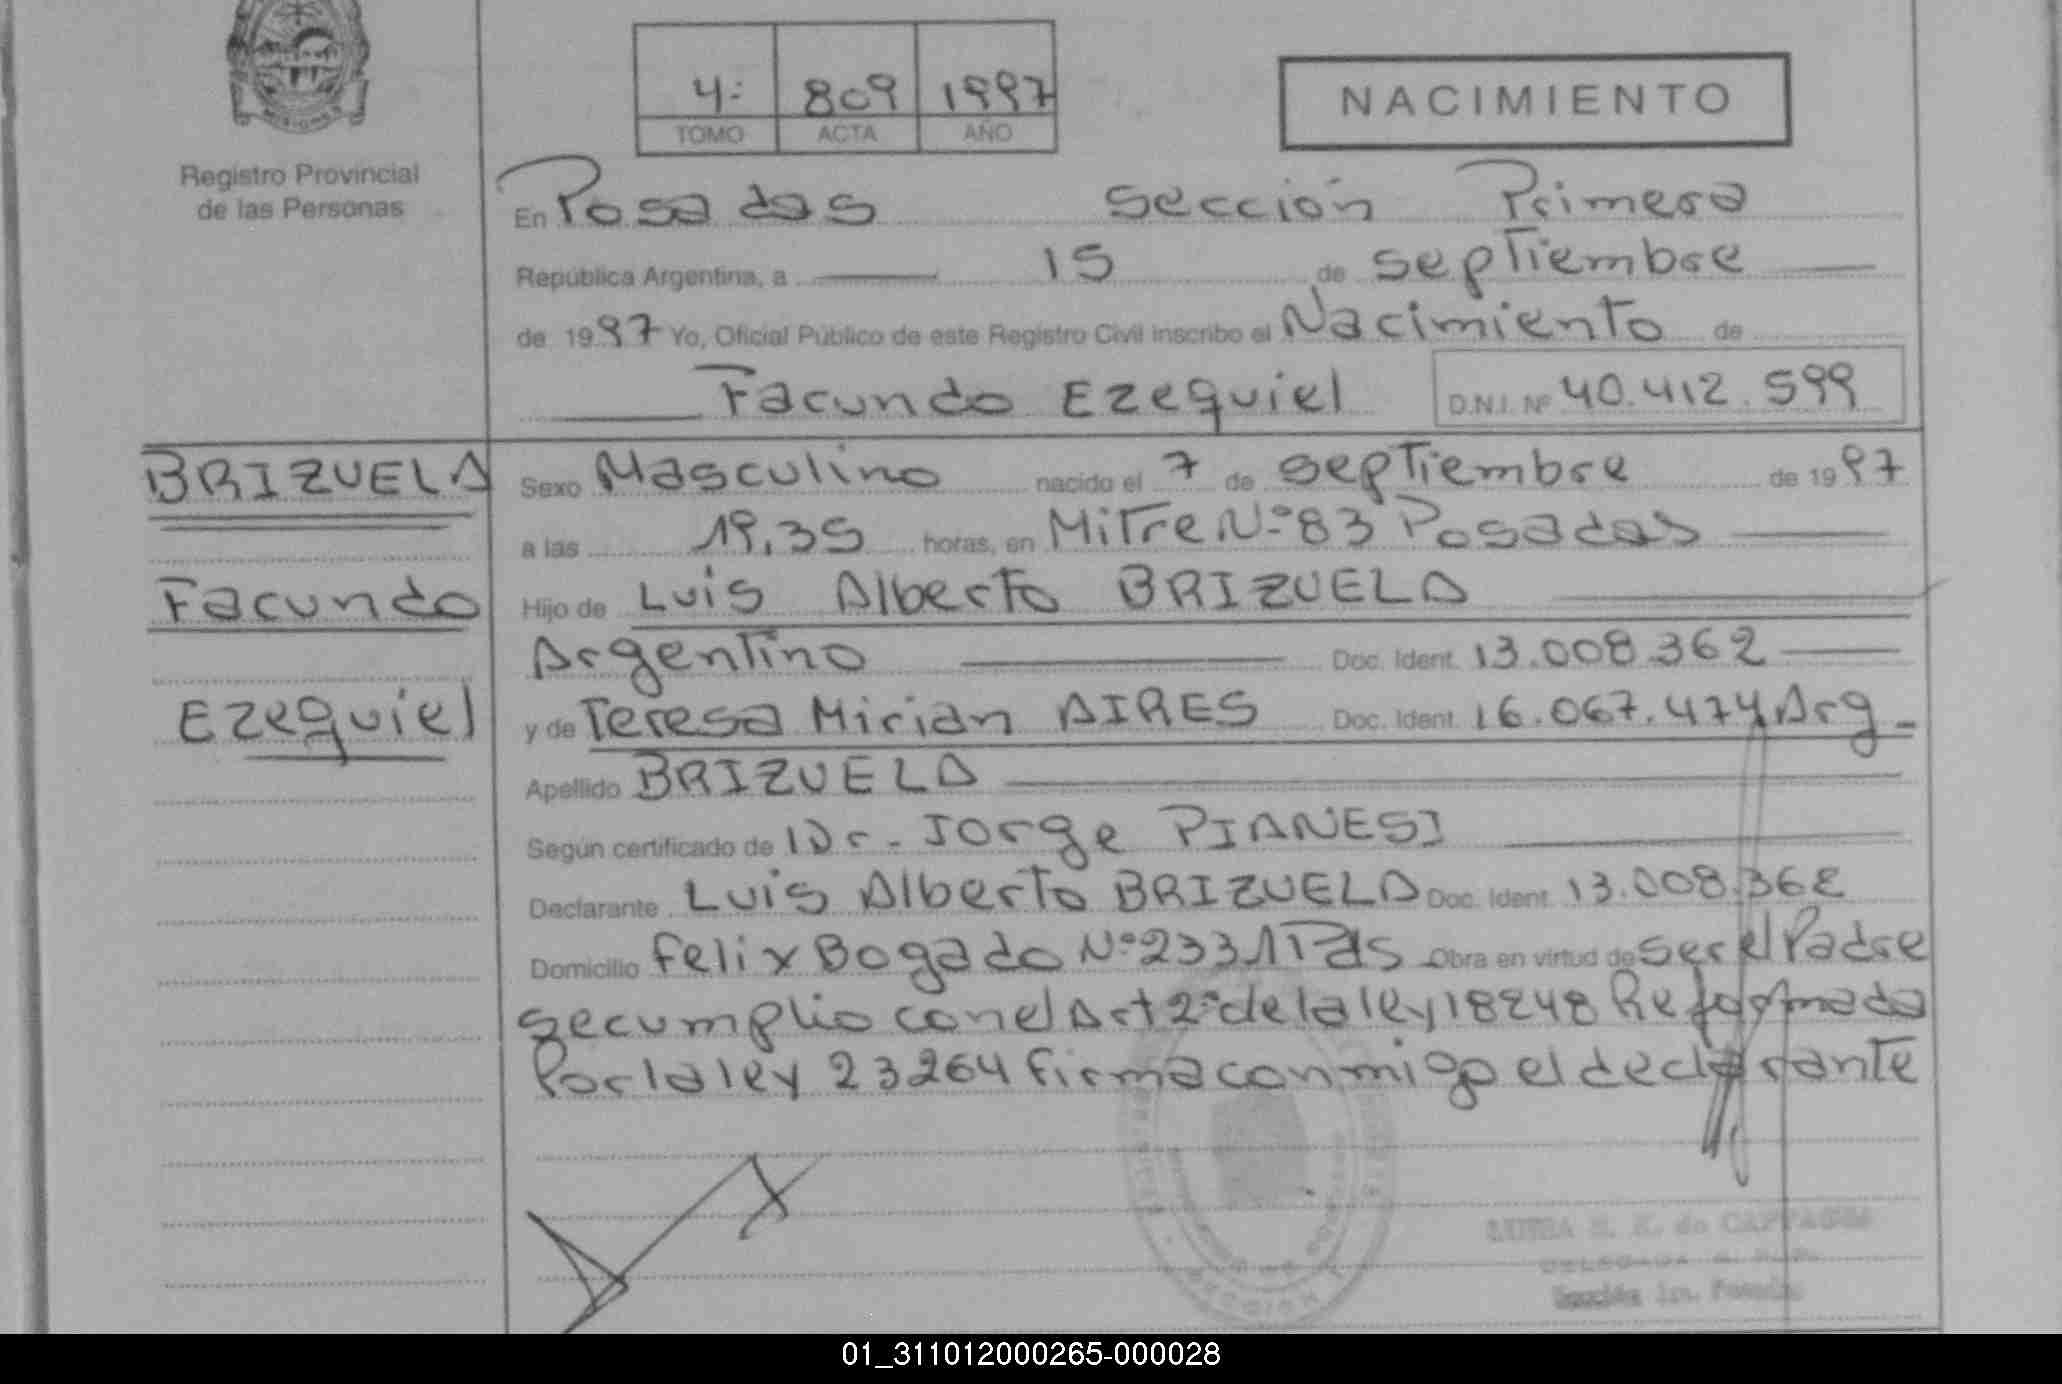 MISIONES
Registro Provincial
de las Personas
4: 809 1997
TOMO ACTA AÑO
NACIMIENTO
En Posadas sección Primera
República Argentina, a 15 de septiembre
de 1997 Yo, Oficial Público de este Registro Civil inscribo el Nacimiento de
Facundo Ezequiel D.N.I. Nº 40.412.599
BRIZUELA
Facundo
Ezequiel
Sexo Masculino nacido el 7 de septiembre de 1997
a las 19,35 horas, en Mitre Nº 83 Posadas
Hijo de Luis Alberto BRIZUELA
Argentino Doc. Ident. 13.008.362
y de Teresa Mirian AIRES Doc. Ident. 16.067.474 Arg
Apellido BRIZUELA
Según certificado de Dr. Jorge PIANESI
Declarante Luis Alberto BRIZUELA Doc. Ident. 13.008.362
Domicilio Felix Bogado Nº 2331 Pds Obra en virtud de ser el Padre
se cumplio con el Art 2º de la ley 18248 Reformada
Por la ley 23264 firma conmigo el declarante
Sección 1ra. Posadas
01_311012000265-000028